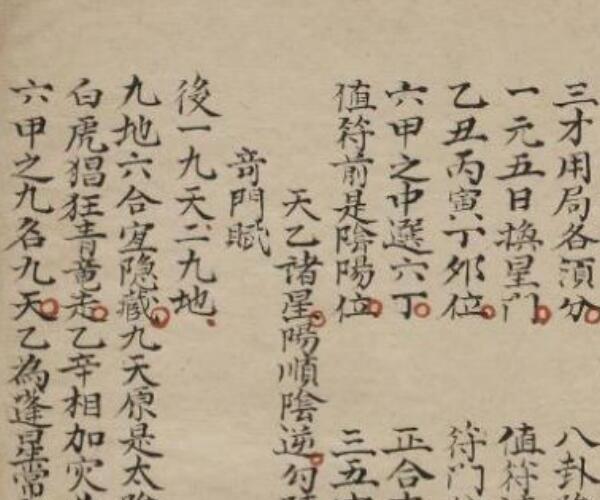 三才用局各須分 八卦
一元五日換星門 值符
乙丑丙寅丁卯位 符門
六甲之中選六丁 正合
值符前是陰陽位 三五
天乙諸星陽順陰逆勾
竒門賦
後一九天二九地
九地六合宜隐藏九天原是太陰
白虎猖狂青竜走乙辛相加灾
六甲之九名九天乙為蓬星常